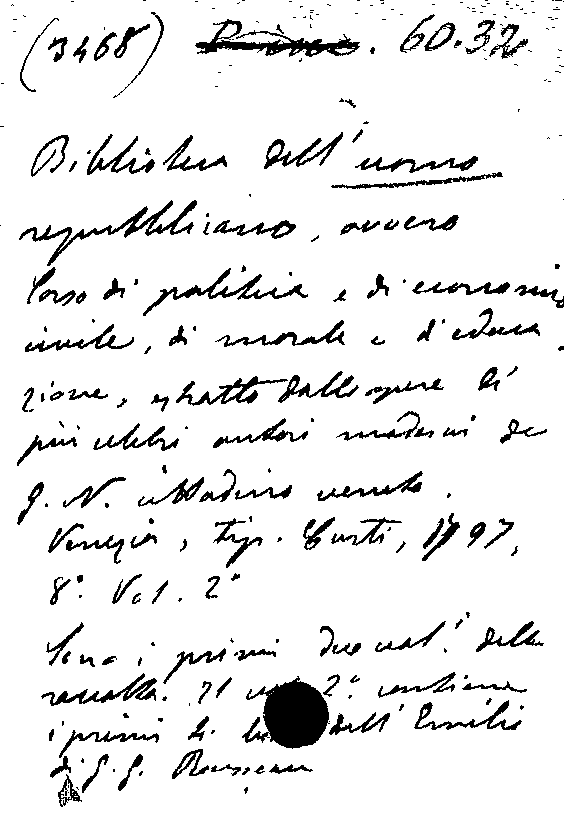 (3468) 60.32
Biblioteca dell'uomo
repubblicano, ovvero
Corso di politica e di economia
civile, di morale e d'educa
zione, estratto dalle opere di
più celebri autori moderni da
G. N. cittadino veneto.
Venezia, Tip. Curti, 1797,
8°. Vol. 2°
Sono i primi due vol.i della
raccolta. Il 2°. contiene
i primi 4. dell'Emilio
di G. G. Rousseau